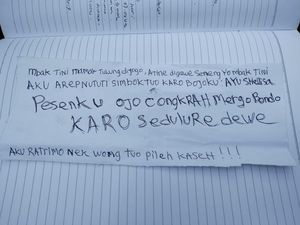 mbak Tini mamak Tulung dijogo, Atine digawe Seneng Yo mbak Tini
AKU AREP NUTUTI SIMBOK TUO KARO BOJOKU
PesenKu OJO CongKRAH Mergo Bondo
KARO Sedulure dewe
AKU RATRIMO NEK WONG TUO PILEH KASEH!!!